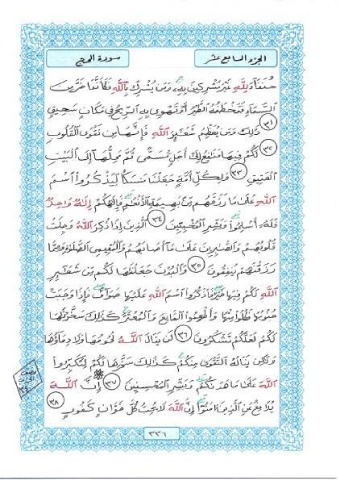 سورة الحج
الجزء السابع عشر
حُنَفَاءَ لِلَّهِ غَيْرَ مُشْرِكِينَ بِهِ وَمَن يُشْرِكْ بِاللَّهِ فَكَأَنَّمَا خَرَّ مِنَ
السَّمَاءِ فَتَخْطَفُهُ الطَّيْرُ أَوْ تَهْوِي بِهِ الرِّيحُ فِي مَكَانٍ سَحِيقٍ
٣١ ذَٰلِكَ وَمَن يُعَظِّمْ شَعَائِرَ اللَّهِ فَإِنَّهَا مِن تَقْوَى الْقُلُوبِ
٣٢ لَكُمْ فِيهَا مَنَافِعُ إِلَىٰ أَجَلٍ مُّسَمًّى ثُمَّ مَحِلُّهَا إِلَى الْبَيْتِ
الْعَتِيقِ ٣٣ وَلِكُلِّ أُمَّةٍ جَعَلْنَا مَنسَكًا لِّيَذْكُرُوا اسْمَ
اللَّهِ عَلَىٰ مَا رَزَقَهُم مِّن بَهِيمَةِ الْأَنْعَامِ فَإِلَٰهُكُمْ إِلَٰهٌ وَاحِدٌ
فَلَهُ أَسْلِمُوا وَبَشِّرِ الْمُخْبِتِينَ ٣٤ الَّذِينَ إِذَا ذُكِرَ اللَّهُ وَجِلَتْ
قُلُوبُهُمْ وَالصَّابِرِينَ عَلَىٰ مَا أَصَابَهُمْ وَالْمُقِيمِي الصَّلَاةِ وَمِمَّا
رَزَقْنَاهُمْ يُنفِقُونَ ٣٥ وَالْبُدْنَ جَعَلْنَاهَا لَكُم مِّن شَعَائِرِ
اللَّهِ لَكُمْ فِيهَا خَيْرٌ فَاذْكُرُوا اسْمَ اللَّهِ عَلَيْهَا صَوَافَّ فَإِذَا وَجَبَتْ
جُنُوبُهَا فَكُلُوا مِنْهَا وَأَطْعِمُوا الْقَانِعَ وَالْمُعْتَرَّ كَذَٰلِكَ سَخَّرْنَاهَا
لَكُمْ لَعَلَّكُمْ تَشْكُرُونَ ٣٦ لَن يَنَالَ اللَّهَ لُحُومُهَا وَلَا دِمَاؤُهَا
وَلَٰكِن يَنَالُهُ التَّقْوَىٰ مِنكُمْ كَذَٰلِكَ سَخَّرَهَا لَكُمْ لِتُكَبِّرُوا
اللَّهَ عَلَىٰ مَا هَدَاكُمْ وَبَشِّرِ الْمُحْسِنِينَ ٣٧ إِنَّ اللَّهَ
يُدَافِعُ عَنِ الَّذِينَ آمَنُوا إِنَّ اللَّهَ لَا يُحِبُّ كُلَّ خَوَّانٍ كَفُورٍ ٣٨
٣٣٦